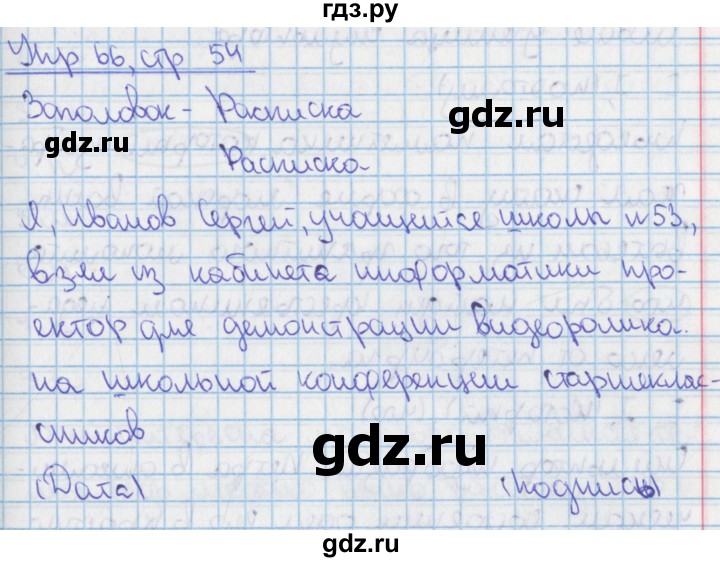 гдз.ру
Упр 66, стр 54
Заголовок - Расписка
gdz.ru
Расписка
Я, Иванов Сергей, учащийся школы №53,
взял из кабинета информатики про-
ектор для демонстрации видеоролика.
gdz.ru
на школьной конференции старшеклас-
сников
gdz.ru
(Дата) (подпись)
gdz.ru
gdz.ru